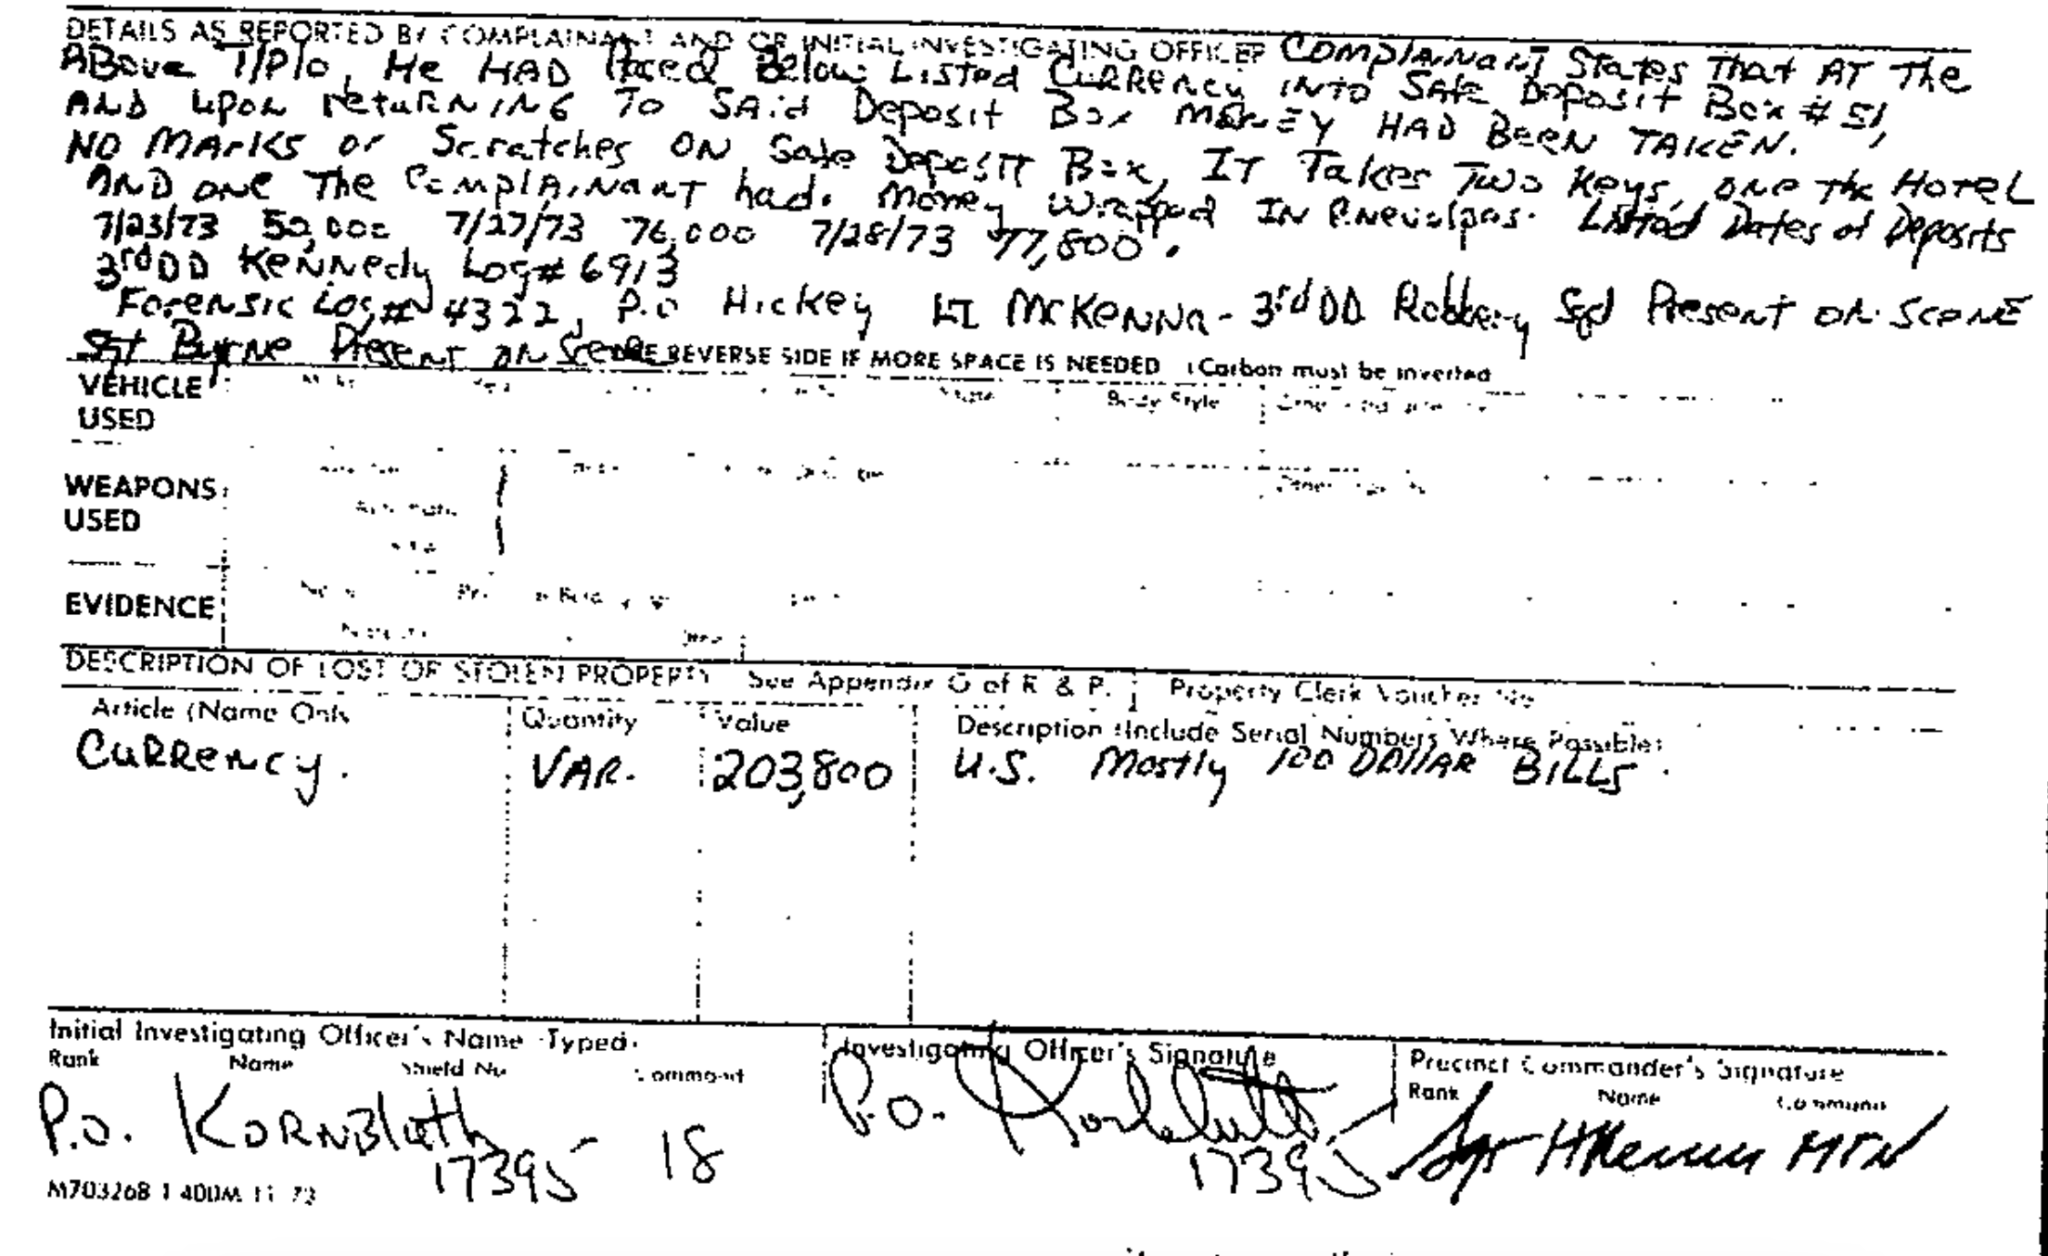 DETAILS AS REPORTED BY COMPLAINANT AND OR INITIAL INVESTIGATING OFFICER COMPLAINANT States That AT The
ABove T/P/O, He HAD Placed Below Listed CURRency INTO SAfe Deposit Box # 51,
AND upon returNING TO SAid Deposit Box MONEY HAD BEEN TAKEN.
NO MArKS or Scratches ON Safe Deposit Box, IT TAKes Two Keys, one the HOTEL
AND one The ComplAiNANT had. Money wrapped IN Listed Dates of Deposits
7/23/73 50,000 7/27/73 76,000 7/28/73 77,800.
3rd DD KeNNedy Log# 6913
ForeNSic Log# 4322, P.O HicKey LT McKeNNA - 3rd DD Robbery Sqd Present on SceNE
Sgt Byrne Present on Scene REVERSE SIDE IF MORE SPACE IS NEEDED (Carbon must be inverted
VEHICLE
USED
State Body Style
WEAPONS
USED
EVIDENCE
DESCRIPTION OF LOST OF STOLEN PROPERTY See Appendix G of R & P. Property Clerk Voucher No
Article (Name Only Quantity Value Description (Include Serial Numbers Where Possible)
CuRRency. VAR. 203,800 U.S. Mostly 100 DOLLAR BILLS.
Initial Investigating Officer's Name Typed. Investigating Officer's Signature Precinct Commander's Signature
Rank Name Shield No Command Rank Name Command
P.O. KORNBluth 17395 18 P.O. Kornbluth 17395 Sgt MTN
M703268 1 400M 11 73